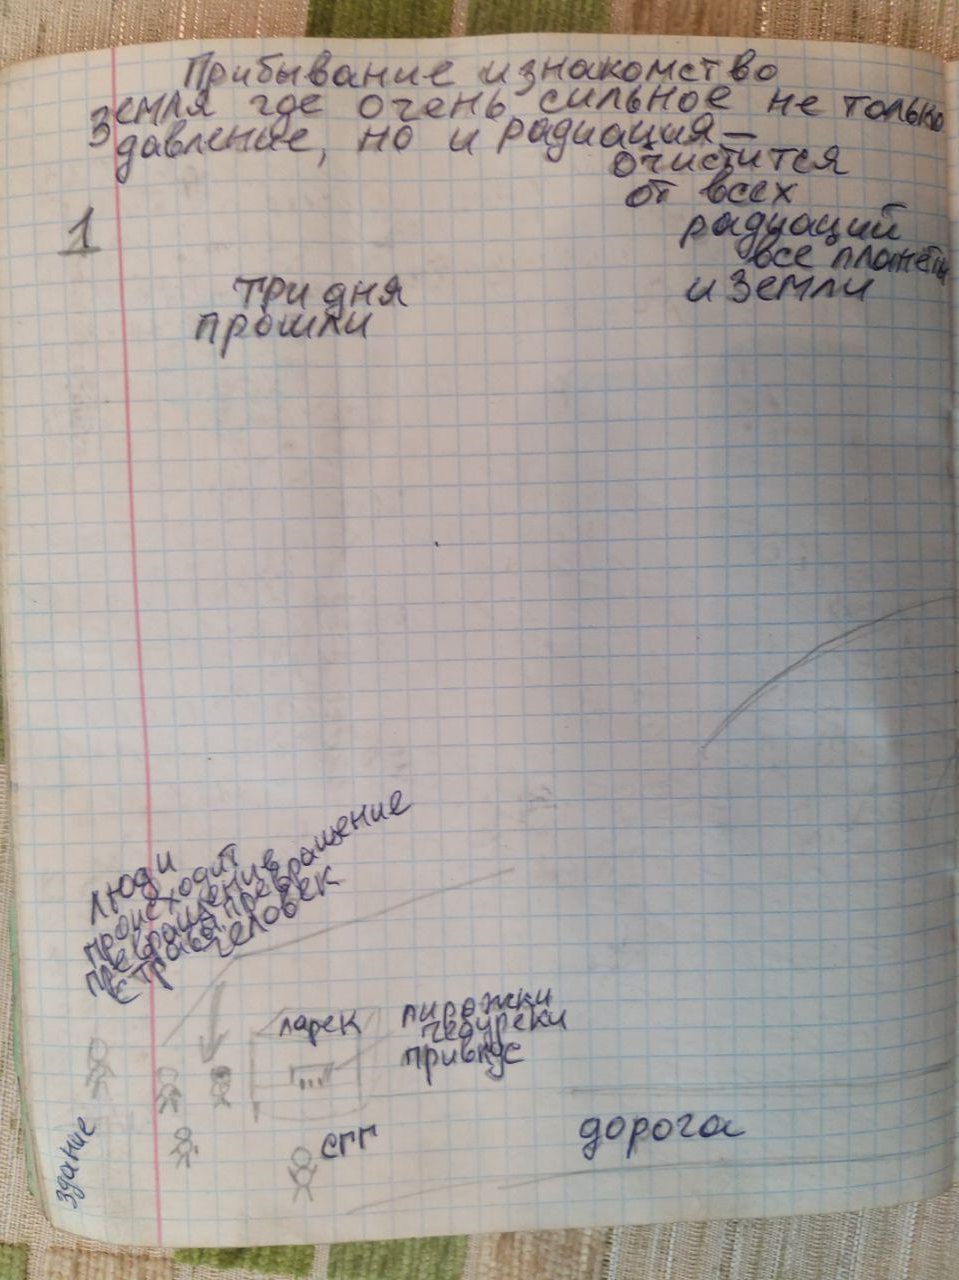 Прибывание и знакомство
Земля где очень сильное не только
давление, но и радиация —
очистится
от всех
радиаций
все планеты
и Земли
1
три дня
прошли
люди
происходит
превращение в
превращение
человек
ларек
пирожки
чебуреки
привкус
сгг
дорога
здание